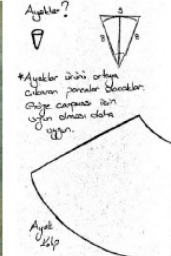 Ayaklar?
5
8 8
*Ayaklar ürünü ortaya
çıkaran parçalar olacaklar.
Göze çarpması için
uzun olması daha
uygun.
Ayak
Kalıp